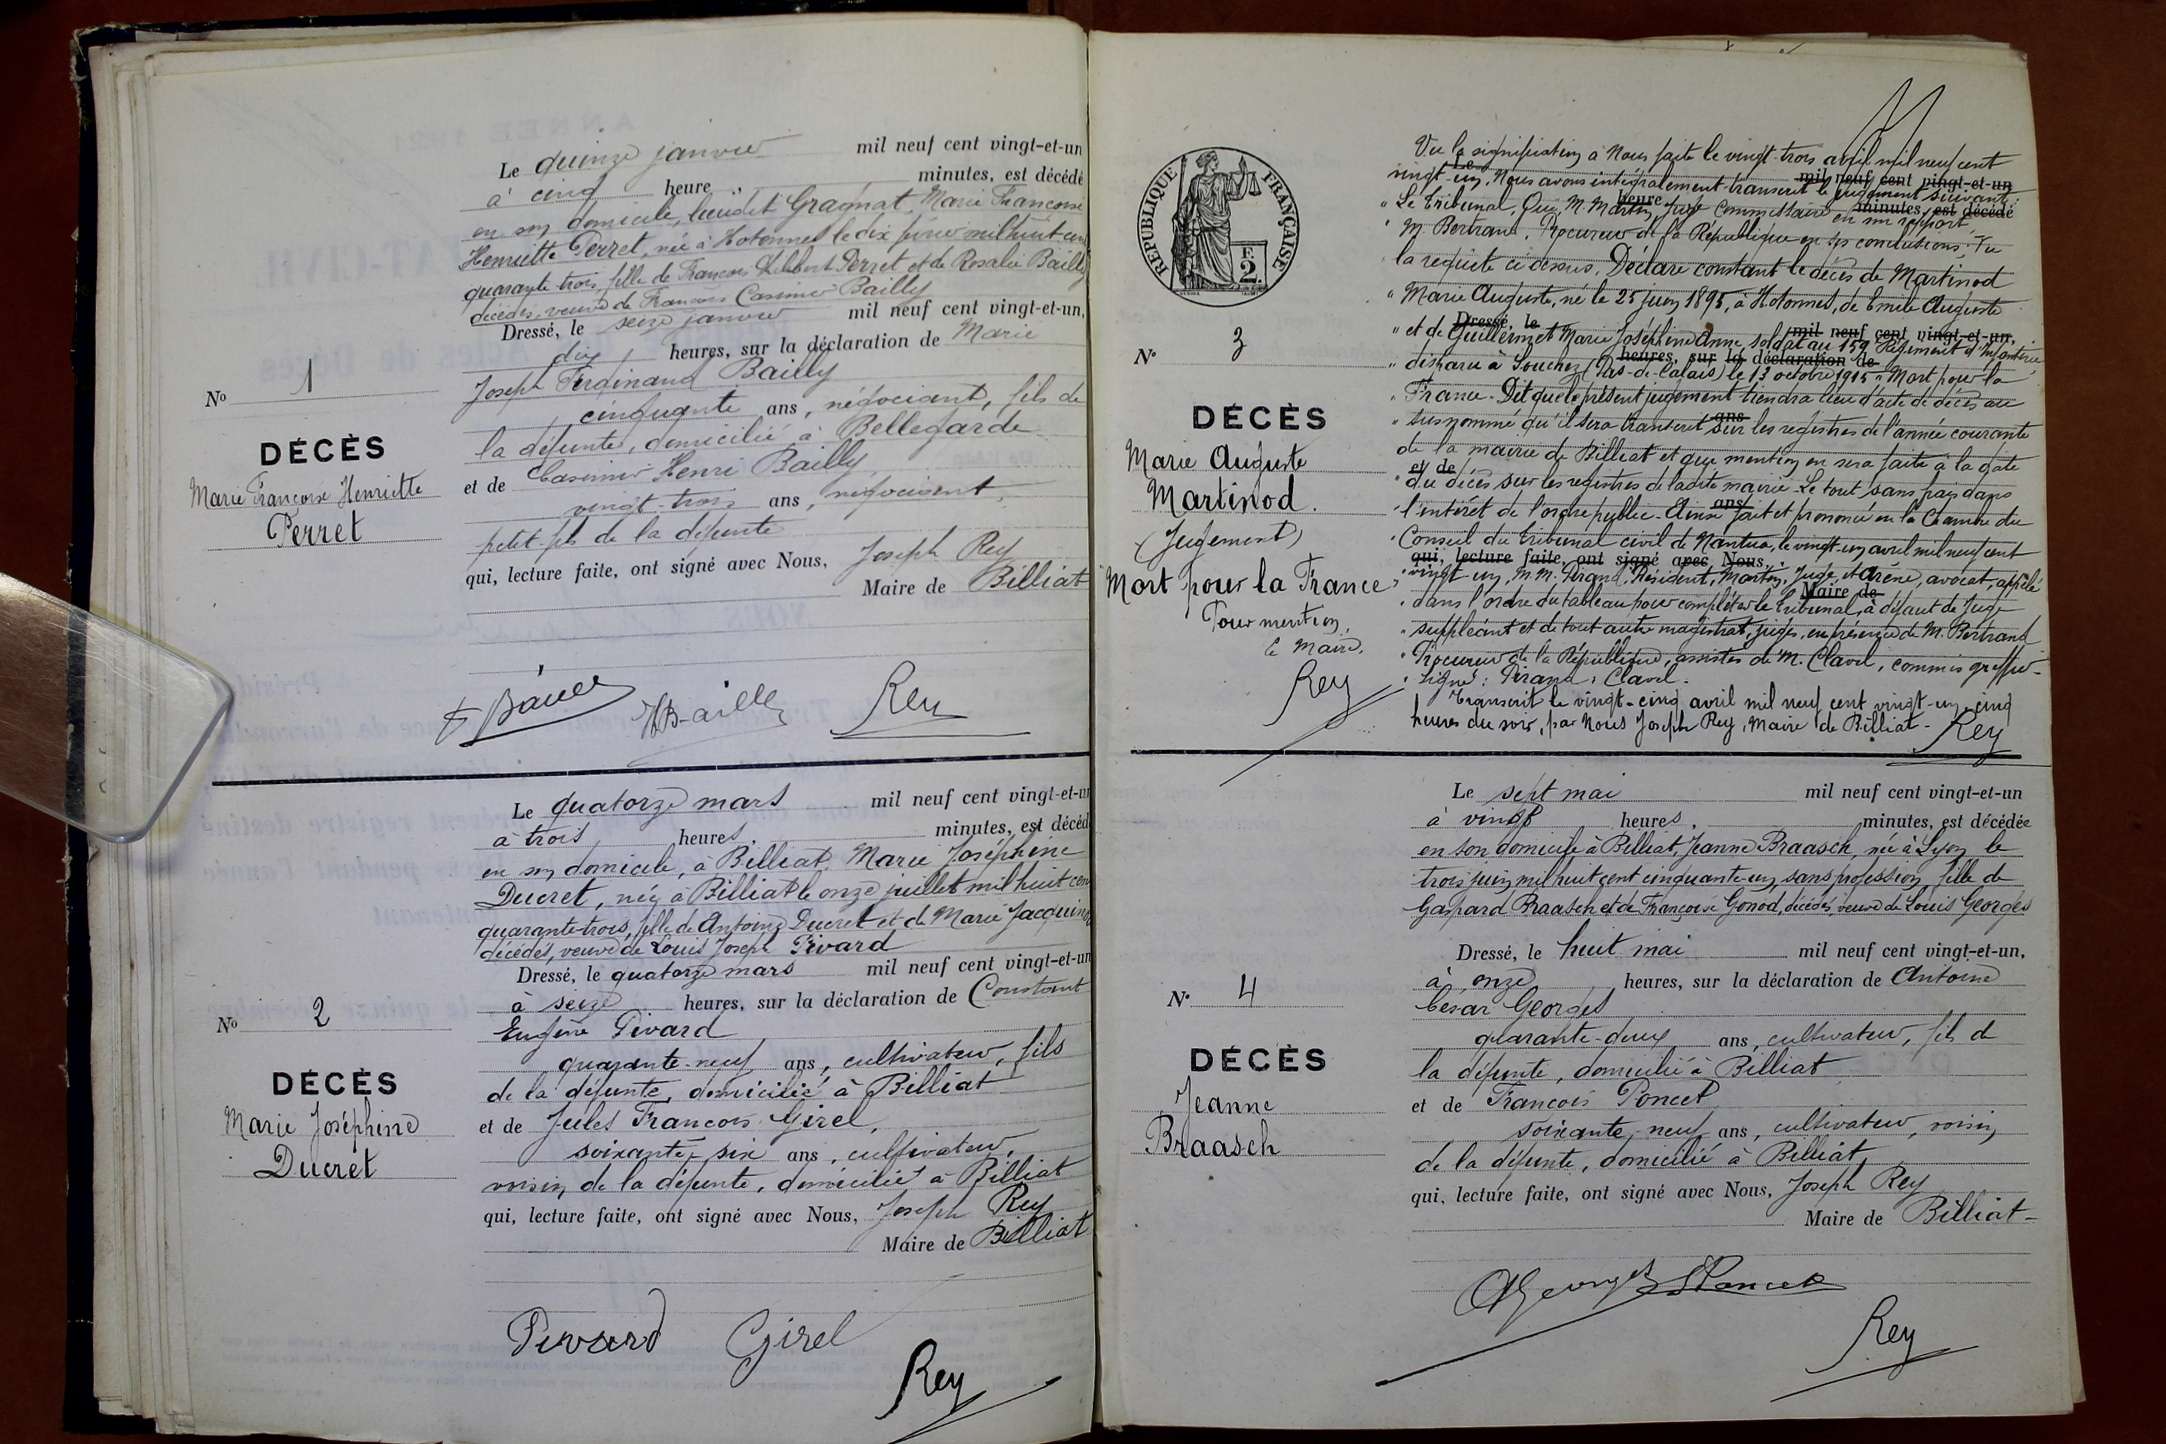 Le quinze janvier mil neuf cent vingt-et-un
à cinq heure " minutes, est décédé
en son domicile, lieudit Gragnat, Marie Françoise
Henriette Perret, née à Hotonnes le dix février mil huit cent
quarante-trois, fille de François Philibert Perret et de Rosalie Bailly
décédés, veuve de François Casimir Bailly
Dressé, le seize janvier mil neuf cent vingt-et-un,
dix heures, sur la déclaration de Marie
Joseph Ferdinand Bailly
cinquante ans, négociant, fils de
la défunte, domicilié à Bellegarde
et de Casimir Henri Bailly
vingt-trois ans, négociant,
petit-fils de la défunte
qui, lecture faite, ont signé avec Nous, Joseph Rey
Maire de Billiat
No 1
DÉCÈS
Marie Françoise Henriette
Perret
Rey
Le quatorze mars mil neuf cent vingt-et-un
à trois heures, minutes, est décédé
en son domicile, à Billiat, Marie Joséphine
Ducret, née à Billiat le onze juillet mil huit cent
quarante-trois, fille de Antoine Ducret et de Marie Jacquin
décédés, veuve de Louis Joseph Pivard
Dressé, le quatorze mars mil neuf cent vingt-et-un
à seize heures, sur la déclaration de Constant
Eugène Pivard
quarante-neuf ans, cultivateur, fils
de la défunte, domicilié à Billiat
et de Jules François Girel,
soixante-six ans, cultivateur,
voisin de la défunte, domicilié à Billiat
qui, lecture faite, ont signé avec Nous, Joseph Rey
Maire de Billiat
No 2
DÉCÈS
Marie Joséphine
Ducret
Pivard Girel
Rey
RÉPUBLIQUE FRANÇAISE
2
No 3
DÉCÈS
Marie Auguste
Martinod.
(Jugement)
Mort pour la France
Pour mention,
Le Maire,
Rey
Vu la signification à Nous faite le vingt-trois avril mil neuf cent
vingt-un, Nous avons intégralement transcrit le jugement suivant:
" Le Tribunal, Oui, M. Martin, Juge Commissaire en son rapport,
" M. Bertrand, Procureur de la République en ses conclusions; Vu
la requête ci-dessus, Déclare constant le décès de Martinod
" Marie Auguste, né le 25 juin 1895, à Hotonnes, de Emile Auguste
" et de Guillermet Marie Joséphine Anne soldat au 159e Régiment d'Infanterie,
" disparu à Souchez (Pas-de-Calais) le 13 octobre 1915 " Mort pour la
" France. Dit que le présent jugement tiendra lieu d'acte de décès au
" susnommé qu'il sera transcrit sur les registres de l'année courante
de la mairie de Billiat et que mention en sera faite à la date
" du décès sur les registres de ladite mairie. Le tout sans frais dans
" l'intérêt de l'ordre public. Ainsi fait et prononcé en la Chambre du
" Conseil du Tribunal civil de Nantua, le vingt-un avril mil neuf cent
" vingt un, M.M. Président, Martin, Juge, et Arène, avocat, appelé
" dans l'ordre du tableau pour compléter le Tribunal, à défaut de Juge
" suppléant et de tout autre magistrat, juges, en présence de M. Bertrand
" Procureur de la République, assistés de M. Clavel, commis greffier.
" Signé: Clavel.
Transcrit le vingt-cinq avril mil neuf cent vingt-un, cinq
heures du soir, par Nous Joseph Rey, Maire de Billiat.
Rey
Le sept mai mil neuf cent vingt-et-un
à vingt heures, minutes, est décédée
en son domicile à Billiat, Jeanne Braasch, née à Lyon le
trois juin mil huit cent cinquante-un, sans profession, fille de
Gaspard Braasch et de Françoise Gonod, décédés, veuve de Louis Georges
Dressé, le huit mai mil neuf cent vingt-et-un,
à onze heures, sur la déclaration de Antoine
César Georges
quarante-deux ans, cultivateur, fils de
la défunte, domicilié à Billiat
et de François Poncet
soixante-neuf ans, cultivateur, voisin
de la défunte, domicilié à Billiat,
qui, lecture faite, ont signé avec Nous, Joseph Rey
Maire de Billiat
No 4
DÉCÈS
Jeanne
Braasch
Rey